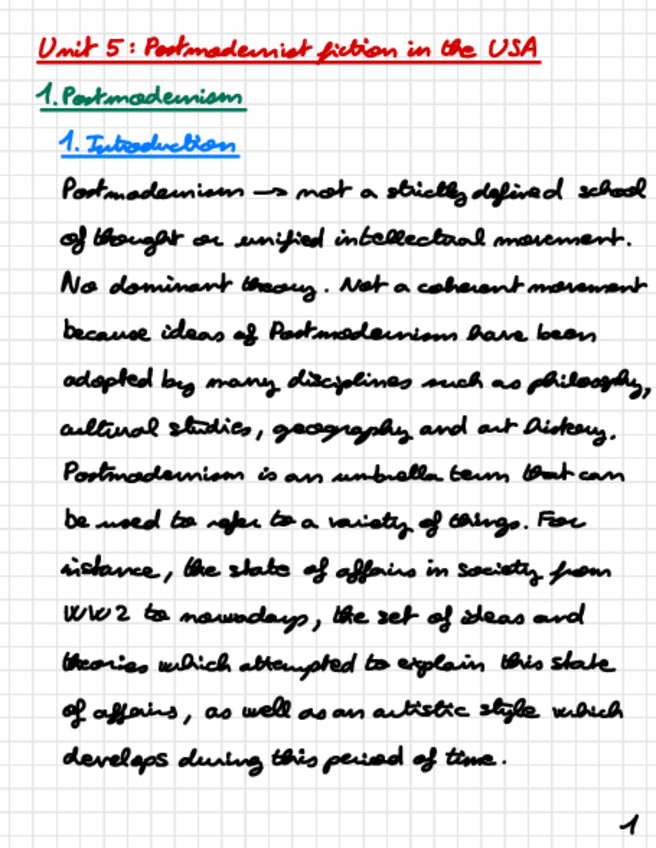 Unit 5: Postmodernist fiction in the USA
1. Postmodernism
1. Introduction
Postmodernism → not a strictly defined school
of thought or unified intellectual movement.
No dominant theory. Not a coherent movement
because ideas of Postmodernism have been
adopted by many disciplines such as philosophy,
cultural studies, geography and art history.
Postmodernism is an umbrella term that can
be used to refer to a variety of things. For
instance, the state of affairs in society from
WW2 to nowadays, the set of ideas and
theories which attempted to explain this state
of affairs, as well as an artistic style which
develops during this period of time.
1